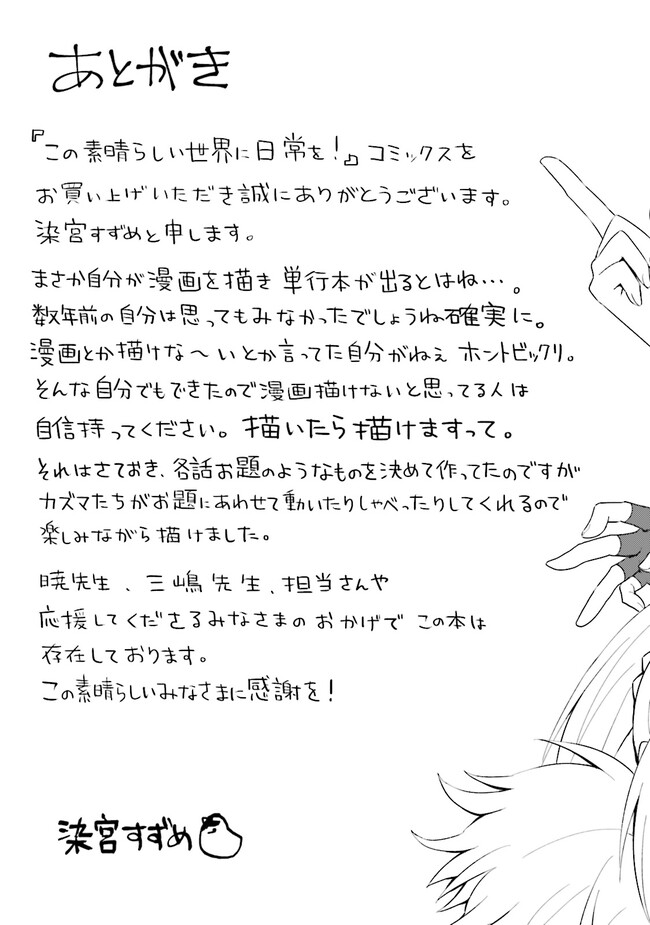 あとがき
『この素晴らしい世界に日常を！』コミックスを
お買い上げいただき誠にありがとうございます。
染宮すずめと申します。
まさか自分が漫画を描き単行本が出るとはね…。
数年前の自分は思ってもみなかったでしょうね確実に。
漫画とか描けな〜いとか言ってた自分がねぇ ホントビックリ。
そんな自分でもできたので漫画描けないと思ってる人は
自信持ってください。描いたら描けますって。
それはさておき、各話お題のようなものを決めて作ってたのですが
カズマたちがお題にあわせて動いたりしゃべったりしてくれるので
楽しみながら描けました。
暁先生、三嶋先生、担当さんや
応援してくださるみなさまのおかげでこの本は
存在しております。
この素晴らしいみなさまに感謝を！
染宮すずめ